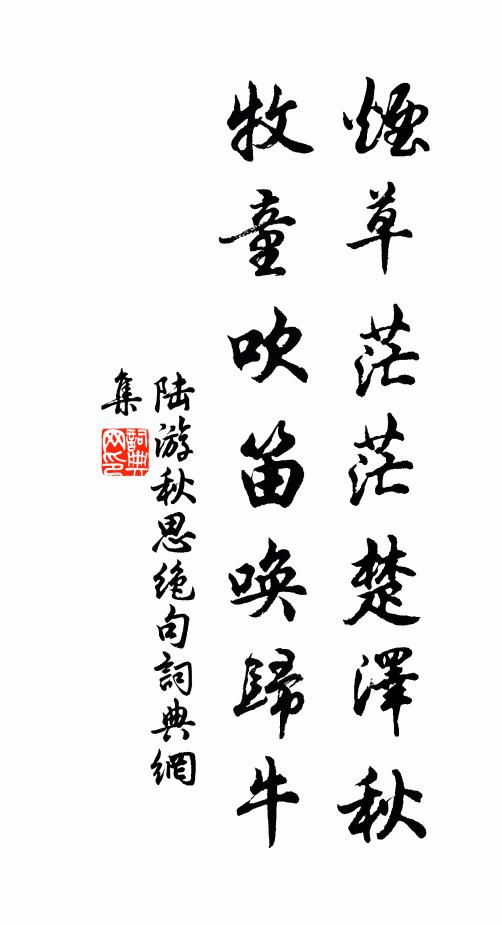 煙草茫茫楚澤秋
牧童吹笛喚歸牛
陆游秋思绝句詞典網
集
詞典
网印